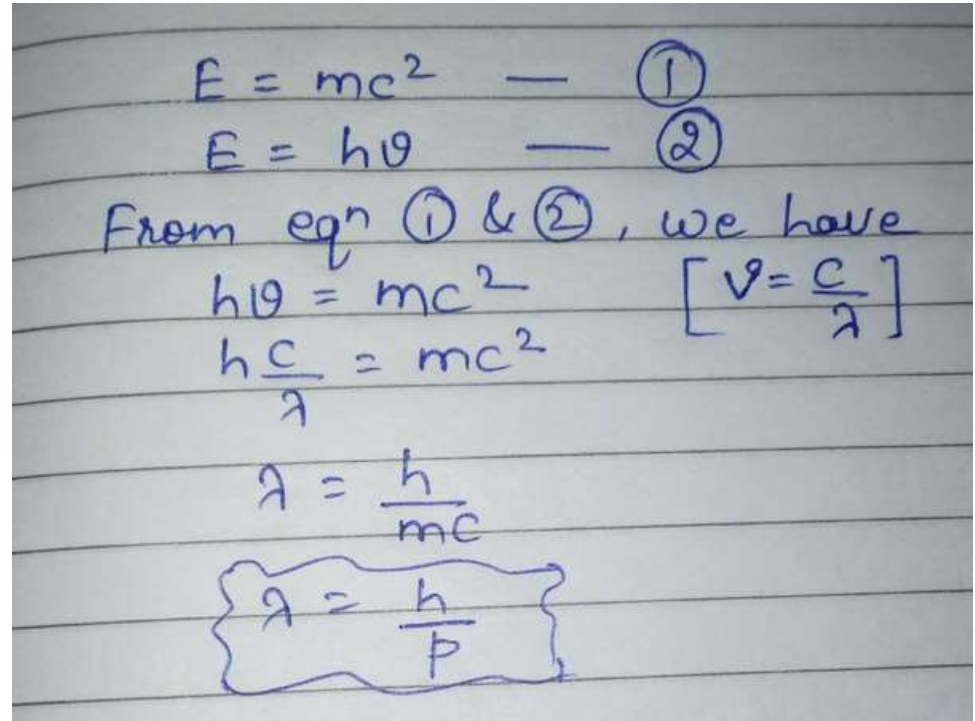 E = mc² — ①
E = hυ — ②
From eqⁿ ① & ②, we have
hυ = mc² [υ = c/λ]
h c/λ = mc²
λ = h/mc
λ = h/p